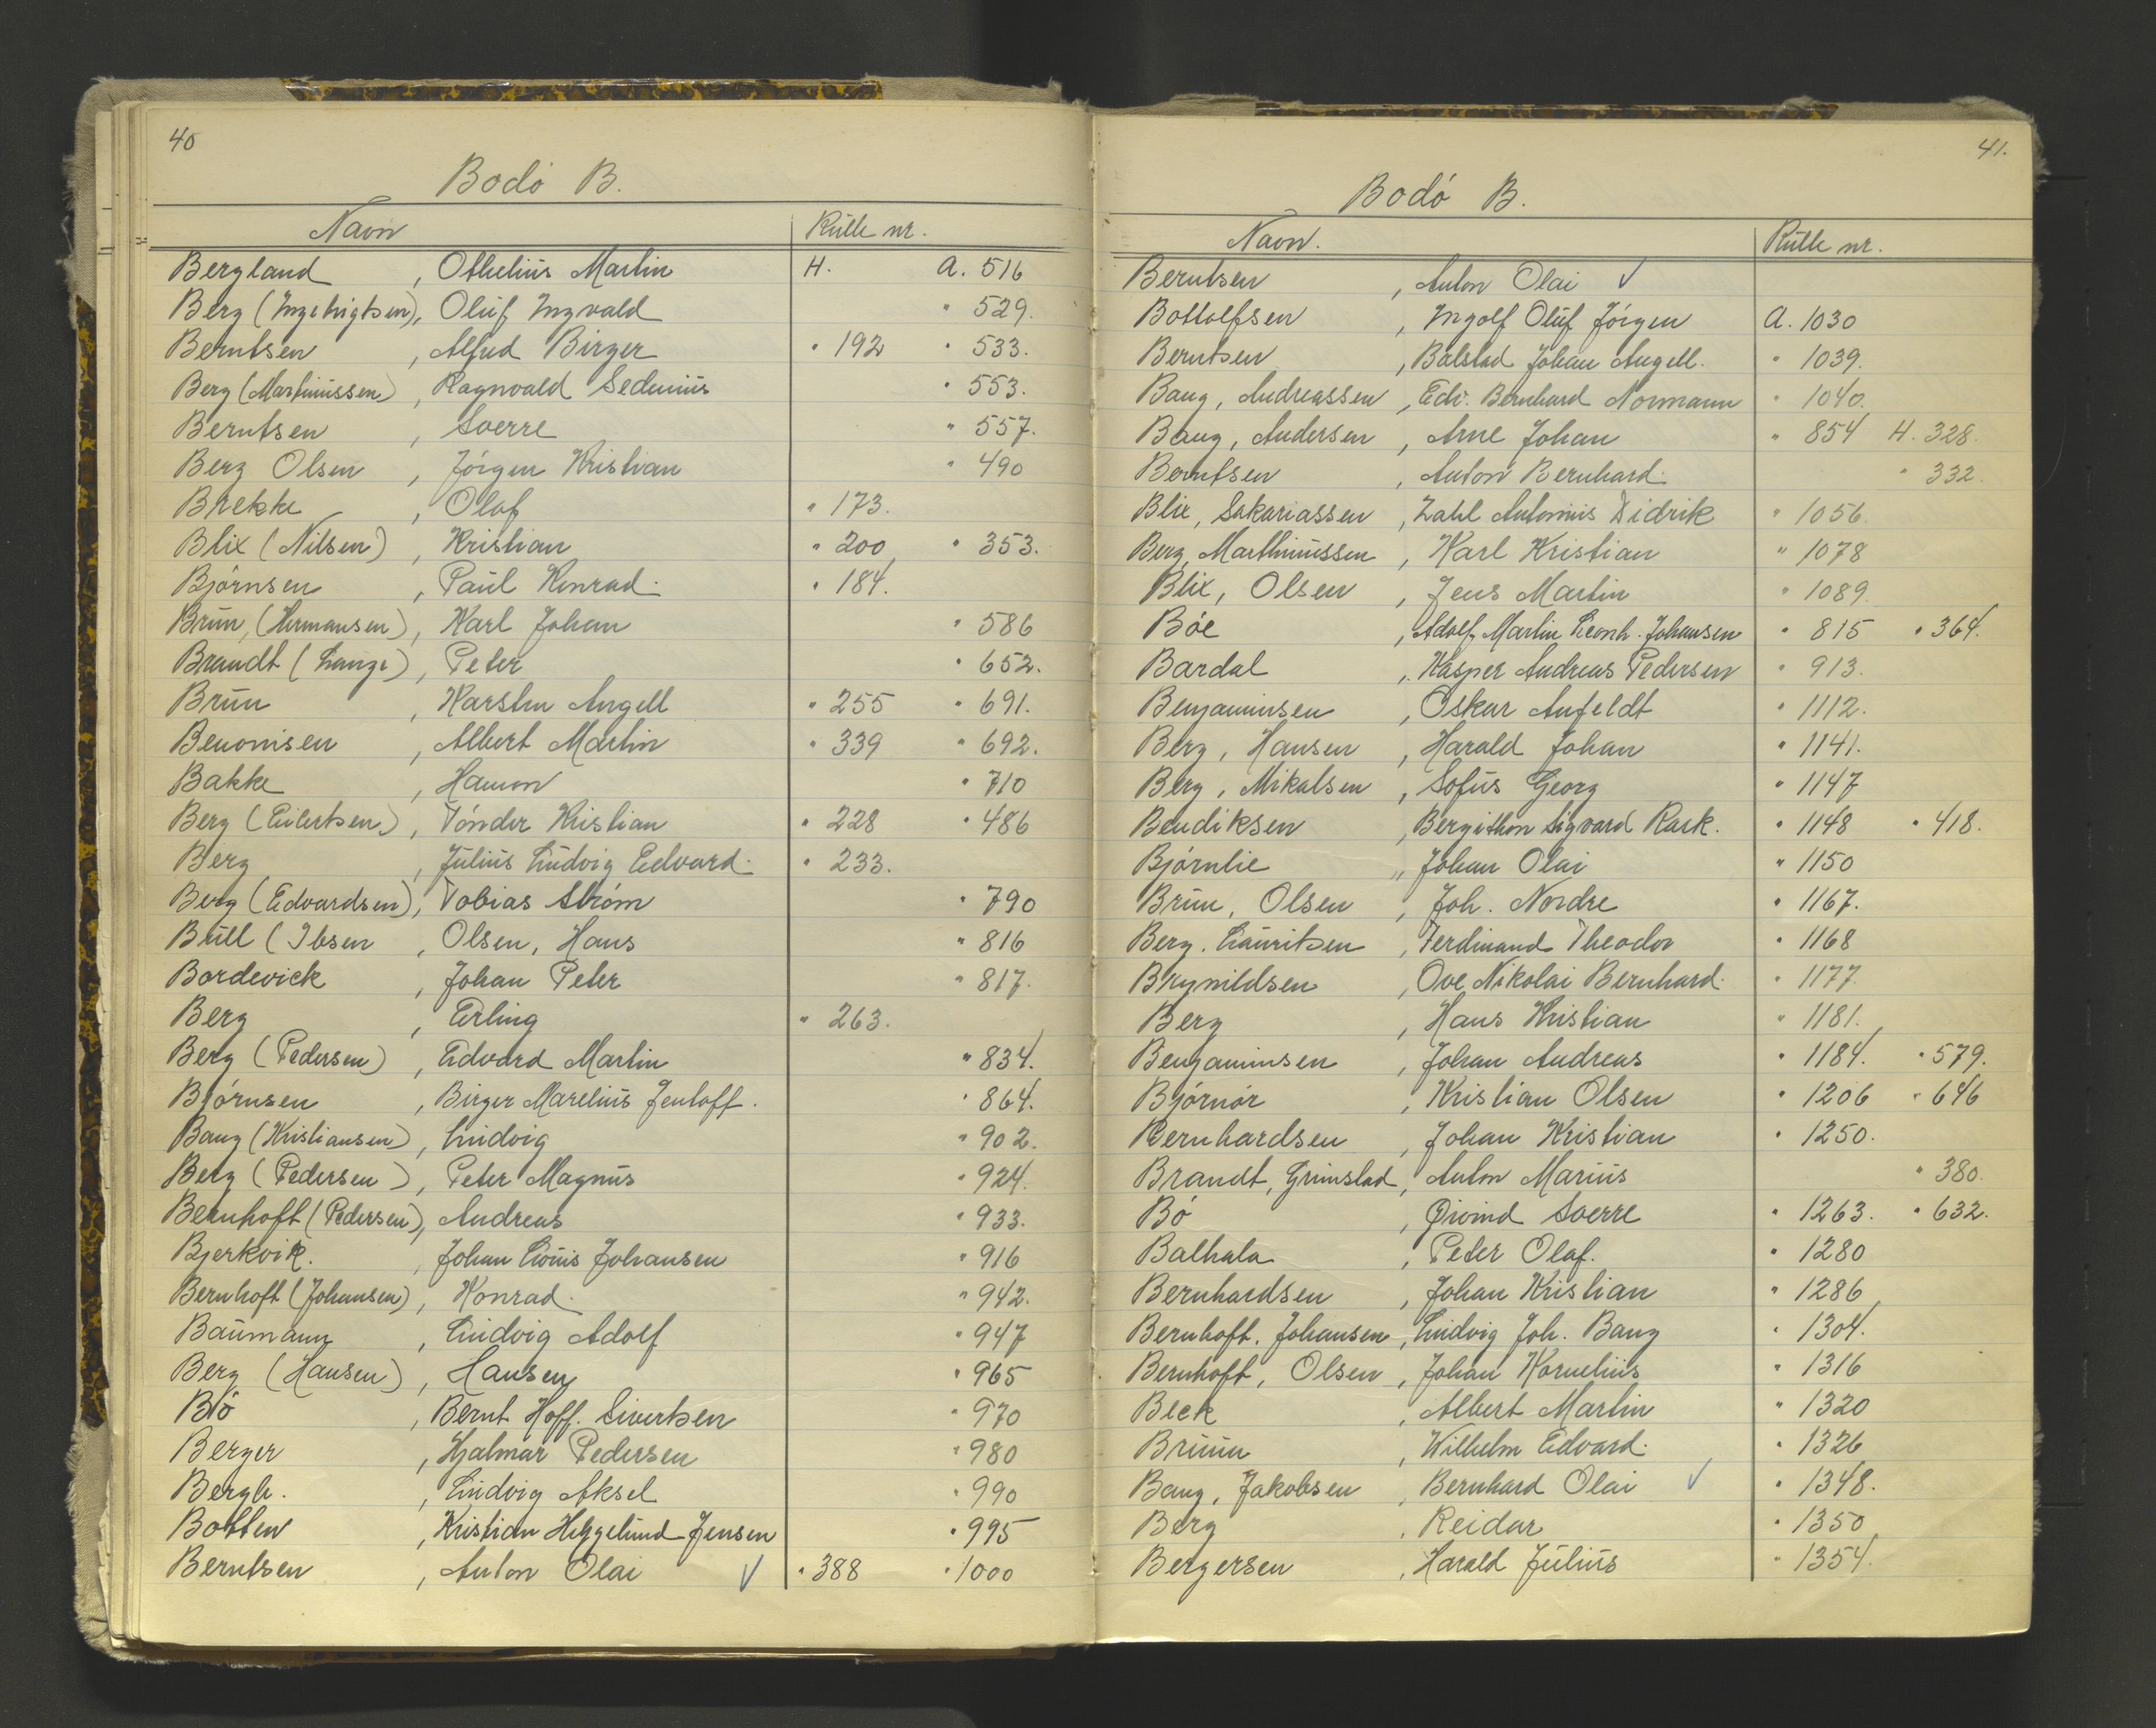 40
Bodó B.
Navn Rulle nr.
Bergland , Othelius Martin H. A. 516
Berg (Ingebrigtsen), Oluf Ingvald " 529.
Berntsen , Alfred Birger " 192 " 533.
Berg (Martinussen) , Ragnvald Sedenius " 553.
Berntsen , Sverre " 557.
Berg Olsen , Jórgen Kristian " 490
Brekke , Olaf " 173.
Blix (Nilsen) , Kristian " 200 " 353.
Bjórnsen , Paul Konrad. " 184.
Brun, (Hermansen) , Karl Johan " 586
Brandt (Lange) , Peter " 652.
Brun , Karsten Angell " 255 " 691.
Benonisen , Albert Martin " 339 " 692.
Bakke , Hamon " 710
Berg (Eilertsen) , Tónder Kristian " 228 " 486
Berg , Julius Ludvig Edvard. " 233.
Berg (Edvardsen), Tobias Stróm " 790
Bull (Ibsen , Olsen, Hans " 816
Bordevick , Johan Peter " 817.
Berg , Erling " 263.
Berg (Pedersen) , Edvard Martin " 834.
Bjórnsen , Birger Marelius Jentoft. " 864.
Bang (Kristiansen) , Ludvig " 902.
Berg (Pedersen) , Peter Magnus " 924.
Bernhoft (Pedersen), Andreas " 933.
Bjerkvik. , Johan Louis Johansen " 916
Bernhoft (Johansen) , Konrad. " 942.
Baumann , Ludvig Adolf " 947
Berg (Hansen) , Hansen " 965
Bó , Bernt Hoff. Sivertsen " 970
Berger , Hjalmar Pedersen " 980
Bergh. , Ludvig Aksel " 990
Botten , Kristian Heggelund Jensen " 995
Berntsen , Anton Olai ✓ " 388 " 1000
41.
Bodó B.
Navn. Rulle nr.
Berntsen , Anton Olai ✓
Bottolfsen , Ingolf Oluf Jórgen A. 1030
Berntsen , Balstad Johan Angell. " 1039.
Bang, Andreassen , Edv. Bernhard Normann " 1040.
Bang, Andersen , Arne Johan " 854 H. 328.
Berntsen , Anton Bernhard. " 332.
Blix, Sakariassen , Zahl Antonius Didrik " 1056.
Berg, Marthinussen , Karl Kristian " 1078
Blix, Olsen , Jens Martin " 1089.
Bóe , Adolf Martin Leonh. Johansen " 815 " 364.
Bardal , Kasper Andreas Pedersen " 913.
Benjaminsen , Oskar Anfeldt " 1112.
Berg, Hansen , Harald Johan " 1141.
Berg, Mikalsen , Sofus Georg " 1147
Bendiksen , Bergithon Sigvard Rask. " 1148 " 418.
Bjórnlie ,, Johan Olai " 1150
Brun, Olsen , Joh. Nordre " 1167.
Berg. Lauritsen , Ferdinand Theodor " 1168
Brynildsen , Ove Nikolai Bernhard. " 1177.
Berg , Hans Kristian " 1181.
Benjaminsen , Johan Andreas " 1184. " 579.
Bjórnór , Kristian Olsen " 1206 " 646
Bernhardsen , Johan Kristian " 1250.
Brandt, Grimstad , Anton Marius " 380.
Bó , Øivind Sverre " 1263. " 632.
Balhala , Peter Olaf. " 1280
Bernhardsen , Johan Kristian " 1286
Bernhoft, Johansen , Ludvig Joh. Bang " 1304.
Bernhoft, Olsen , Johan Kornelius " 1316
Beck , Albert Martin " 1320
Bruun , Wilhelm Edvard. " 1326
Bang, Jakobsen , Bernhard Olai ✓ " 1348.
Berg , Reidar " 1350
Bergersen , Harald Julius " 1354.